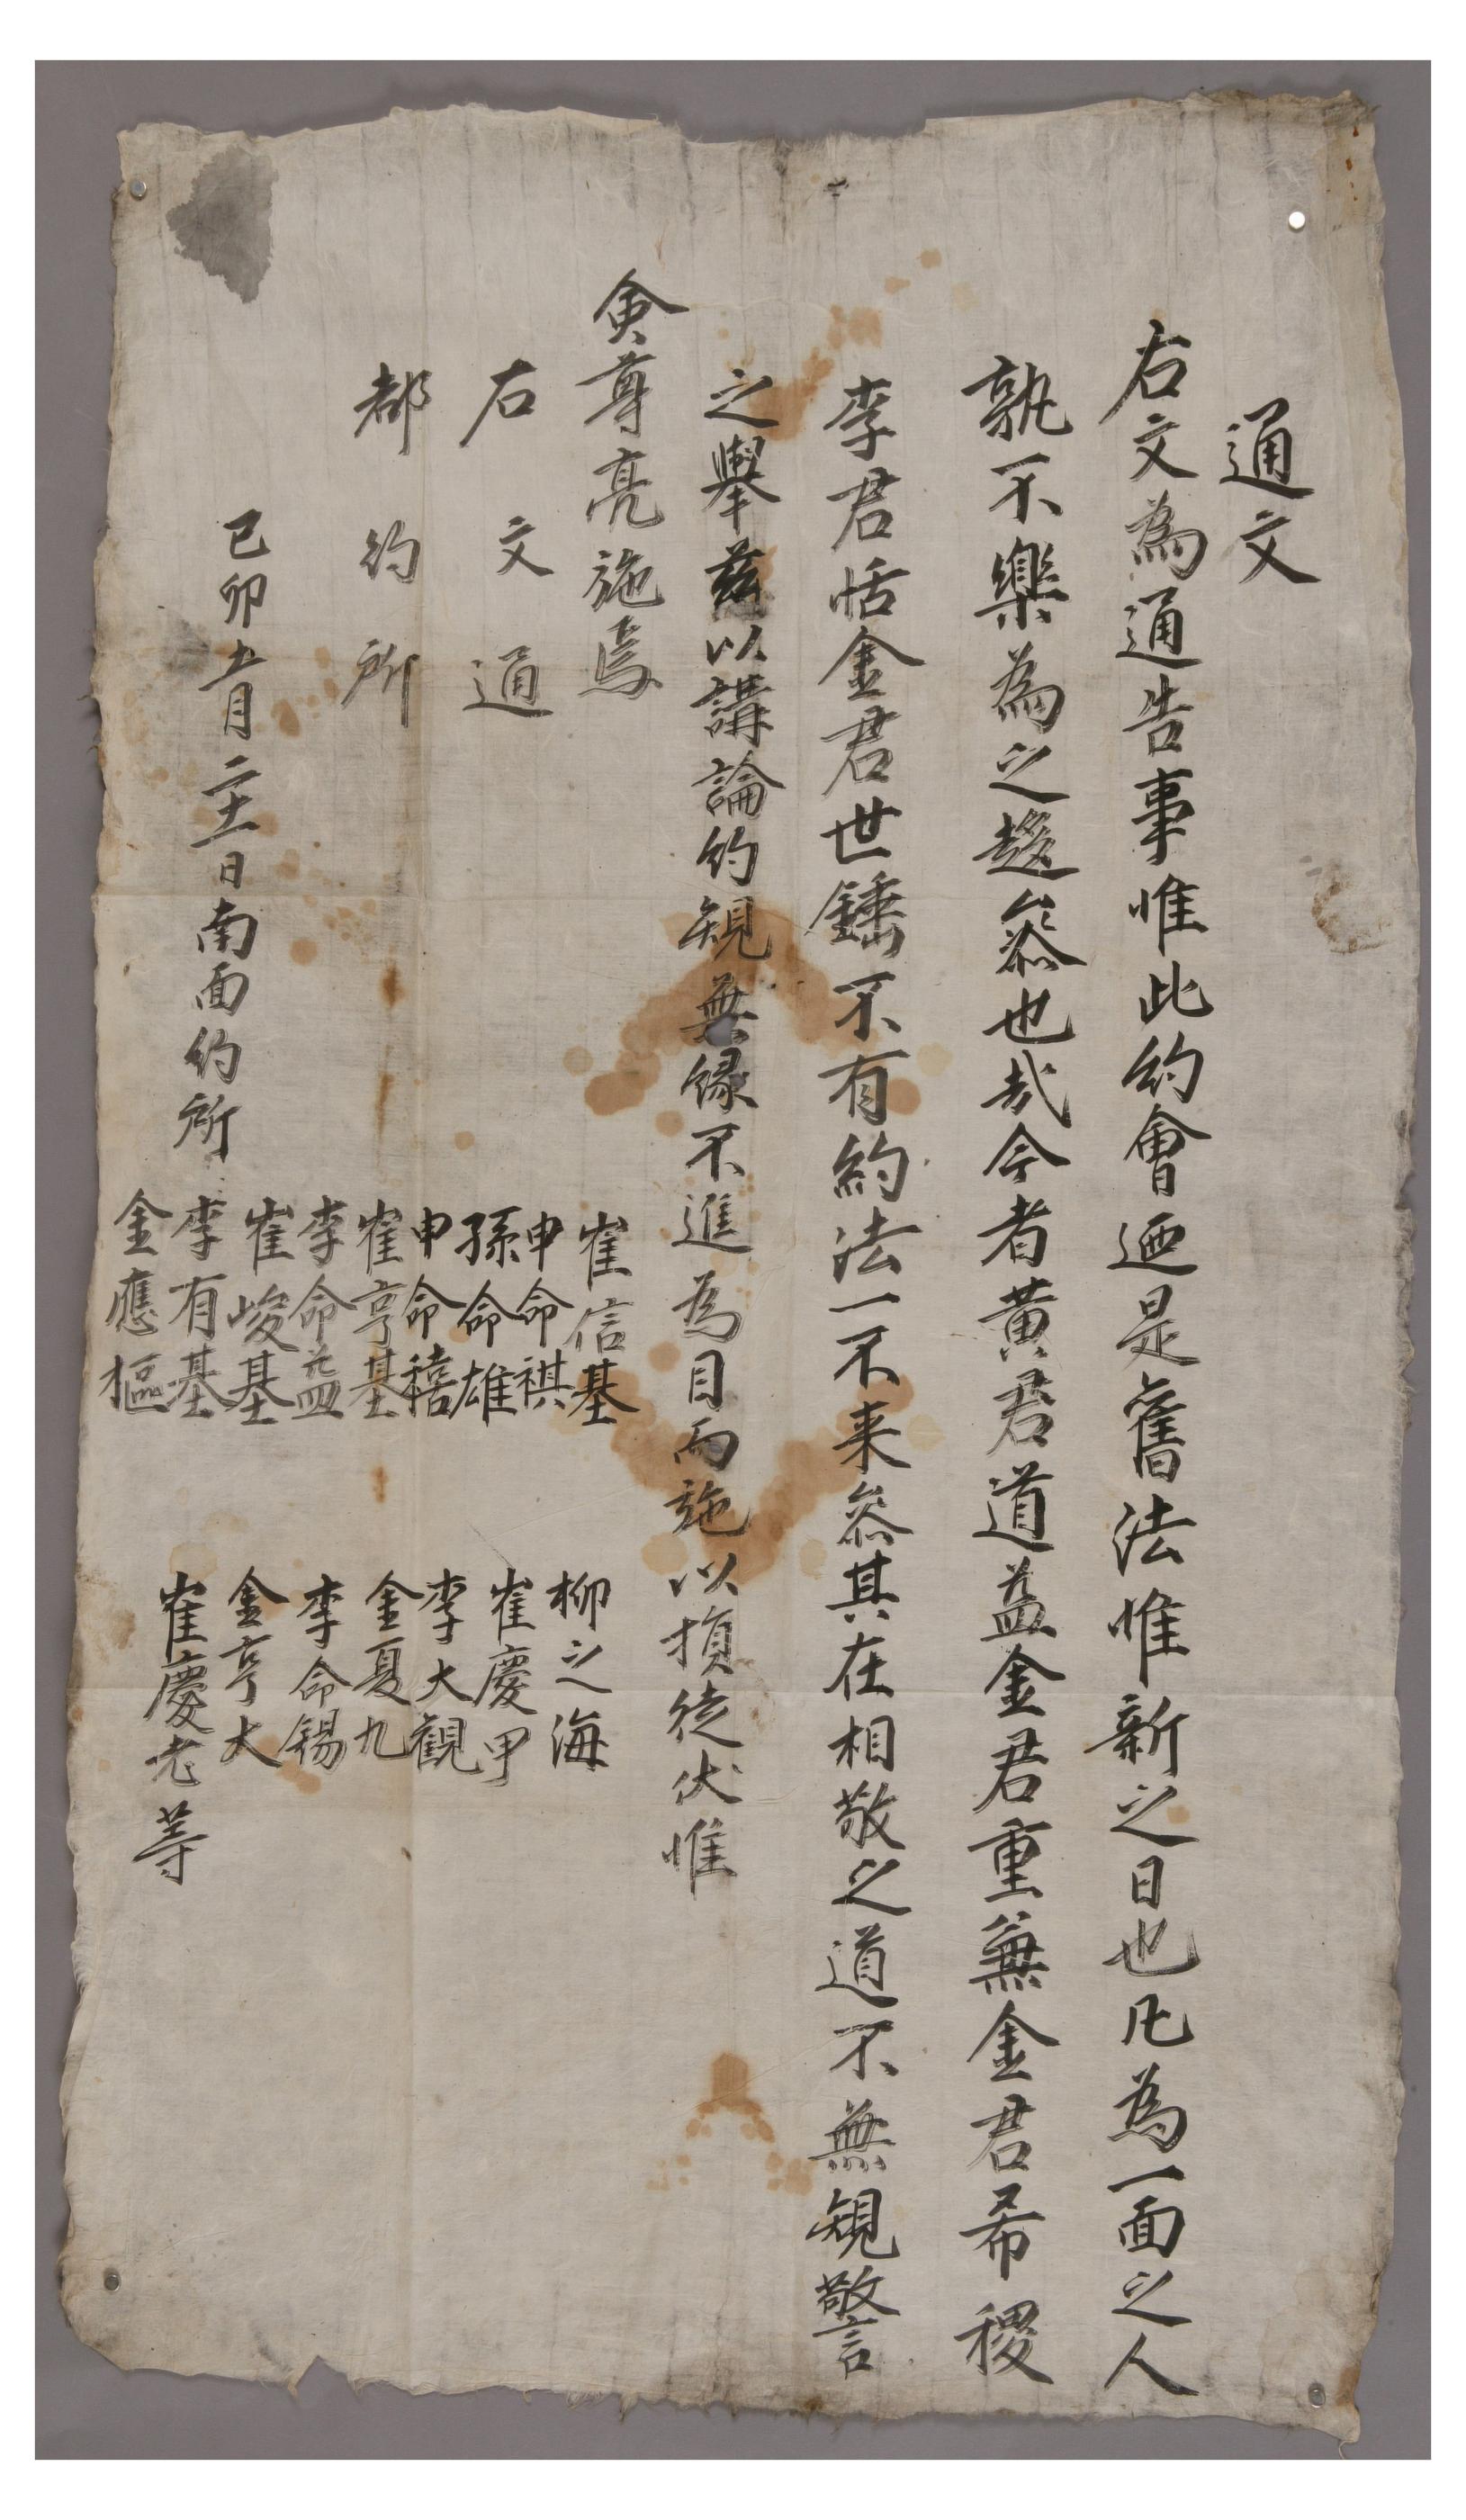 通文
右文為通告事惟此約會迺是舊法惟新之日也凡為一面之人
孰不樂為之趍叅也哉今者黃君道益金君重兼金君希稷
李君恬金君世錘不有約法一不来叅其在相敬之道不無規警
之擧玆以講論約規無緣不進為目而施以損徒伏惟
僉尊亮施焉
右文通
都約所
己卯 月 日南面約所
崔信基
申命祺
孫命雄
申命禧
崔亨基
李命益
崔峻基
李有基
金應樞
柳之海
崔慶甲
李大觀
金夏九
李命錫
金亨大
崔慶老等